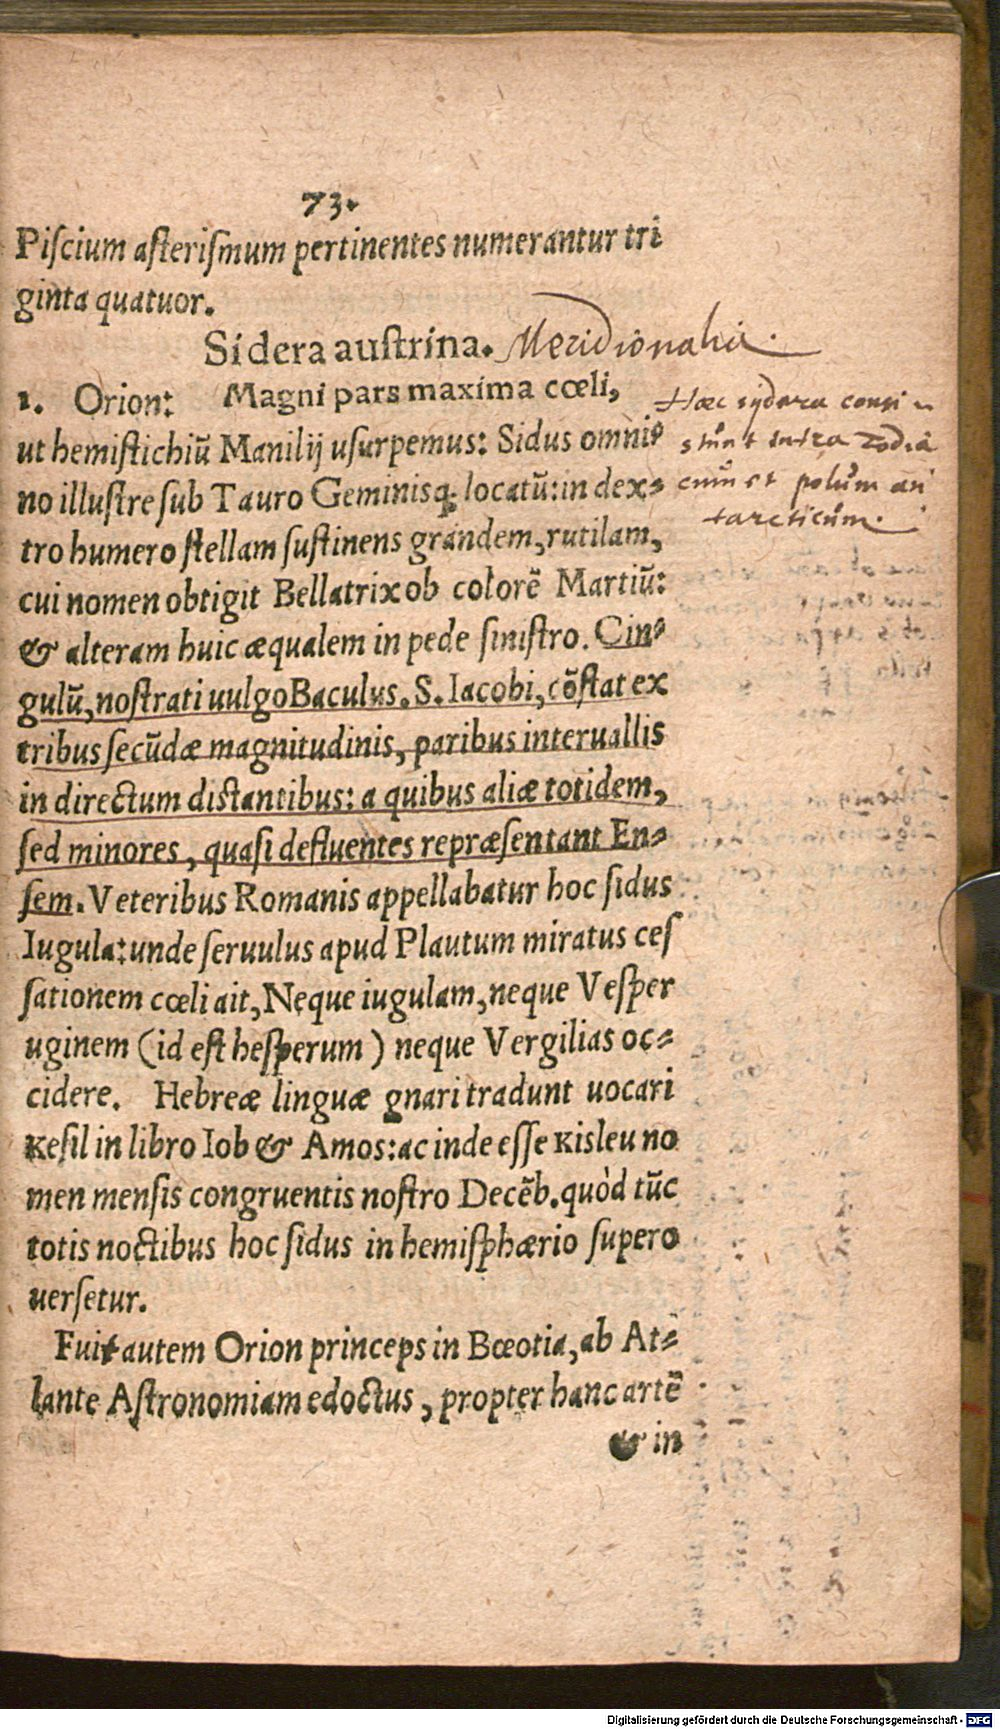 73.
Piſcium aſteriſmum pertinentes numerantur tri
ginta quatuor.
Sidera auſtrina. Meridionalia.
1. Orion: Magni pars maxima cœli,
ut hemiſtichiū Manilij uſurpemus: Sidus omni⸗
no illuſtre ſub Tauro Geminisq́; locatū: in dex⸗
tro humero ſtellam ſuſtinens grandem, rutilam,
cui nomen obtigit Bellatrix ob colorē Martiū:
& alteram huic æqualem in pede ſiniſtro. Cin⸗
gulū, noſtrati uulgo Baculus. S. Iacobi, cōſtat ex
tribus ſecūdæ magnitudinis, paribus interuallis
in directum diſtantibus: a quibus aliæ totidem,
ſed minores, quaſi defluentes repræſentant En⸗
ſem. Veteribus Romanis appellabatur hoc ſidus
Iugula: unde ſeruulus apud Plautum miratus ceſ
ſationem cœli ait, Neque iugulam, neque Veſper
uginem (id eſt heſperum) neque Vergilias oc⸗
cidere. Hebreæ linguæ gnari tradunt uocari
Keſil in libro Iob & Amos: ac inde eſſe Kisleu no
men menſis congruentis noſtro Decēb. quòd tūc
totis noctibus hoc ſidus in hemiſphærio ſupero
uerſetur.
Fuit autem Orion princeps in Bœotia, ab At⸗
lante Aſtronomiam edoctus, propter hanc artē
& in
Hæc sydera consi⸗
stūnt intra Zodia
cūm et polūm an
tarcticūm.
Digitalisierung gefördert durch die Deutsche Forschungsgemeinschaft - DFG